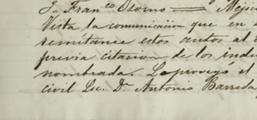 J. Fran.co Osorno — Méjico
Vista la comunicación que en
remitanse estos autos al
previa citacion de los indi
nombrada. Lo proveyó el
civil Lic. Dn. Antonio Barreda